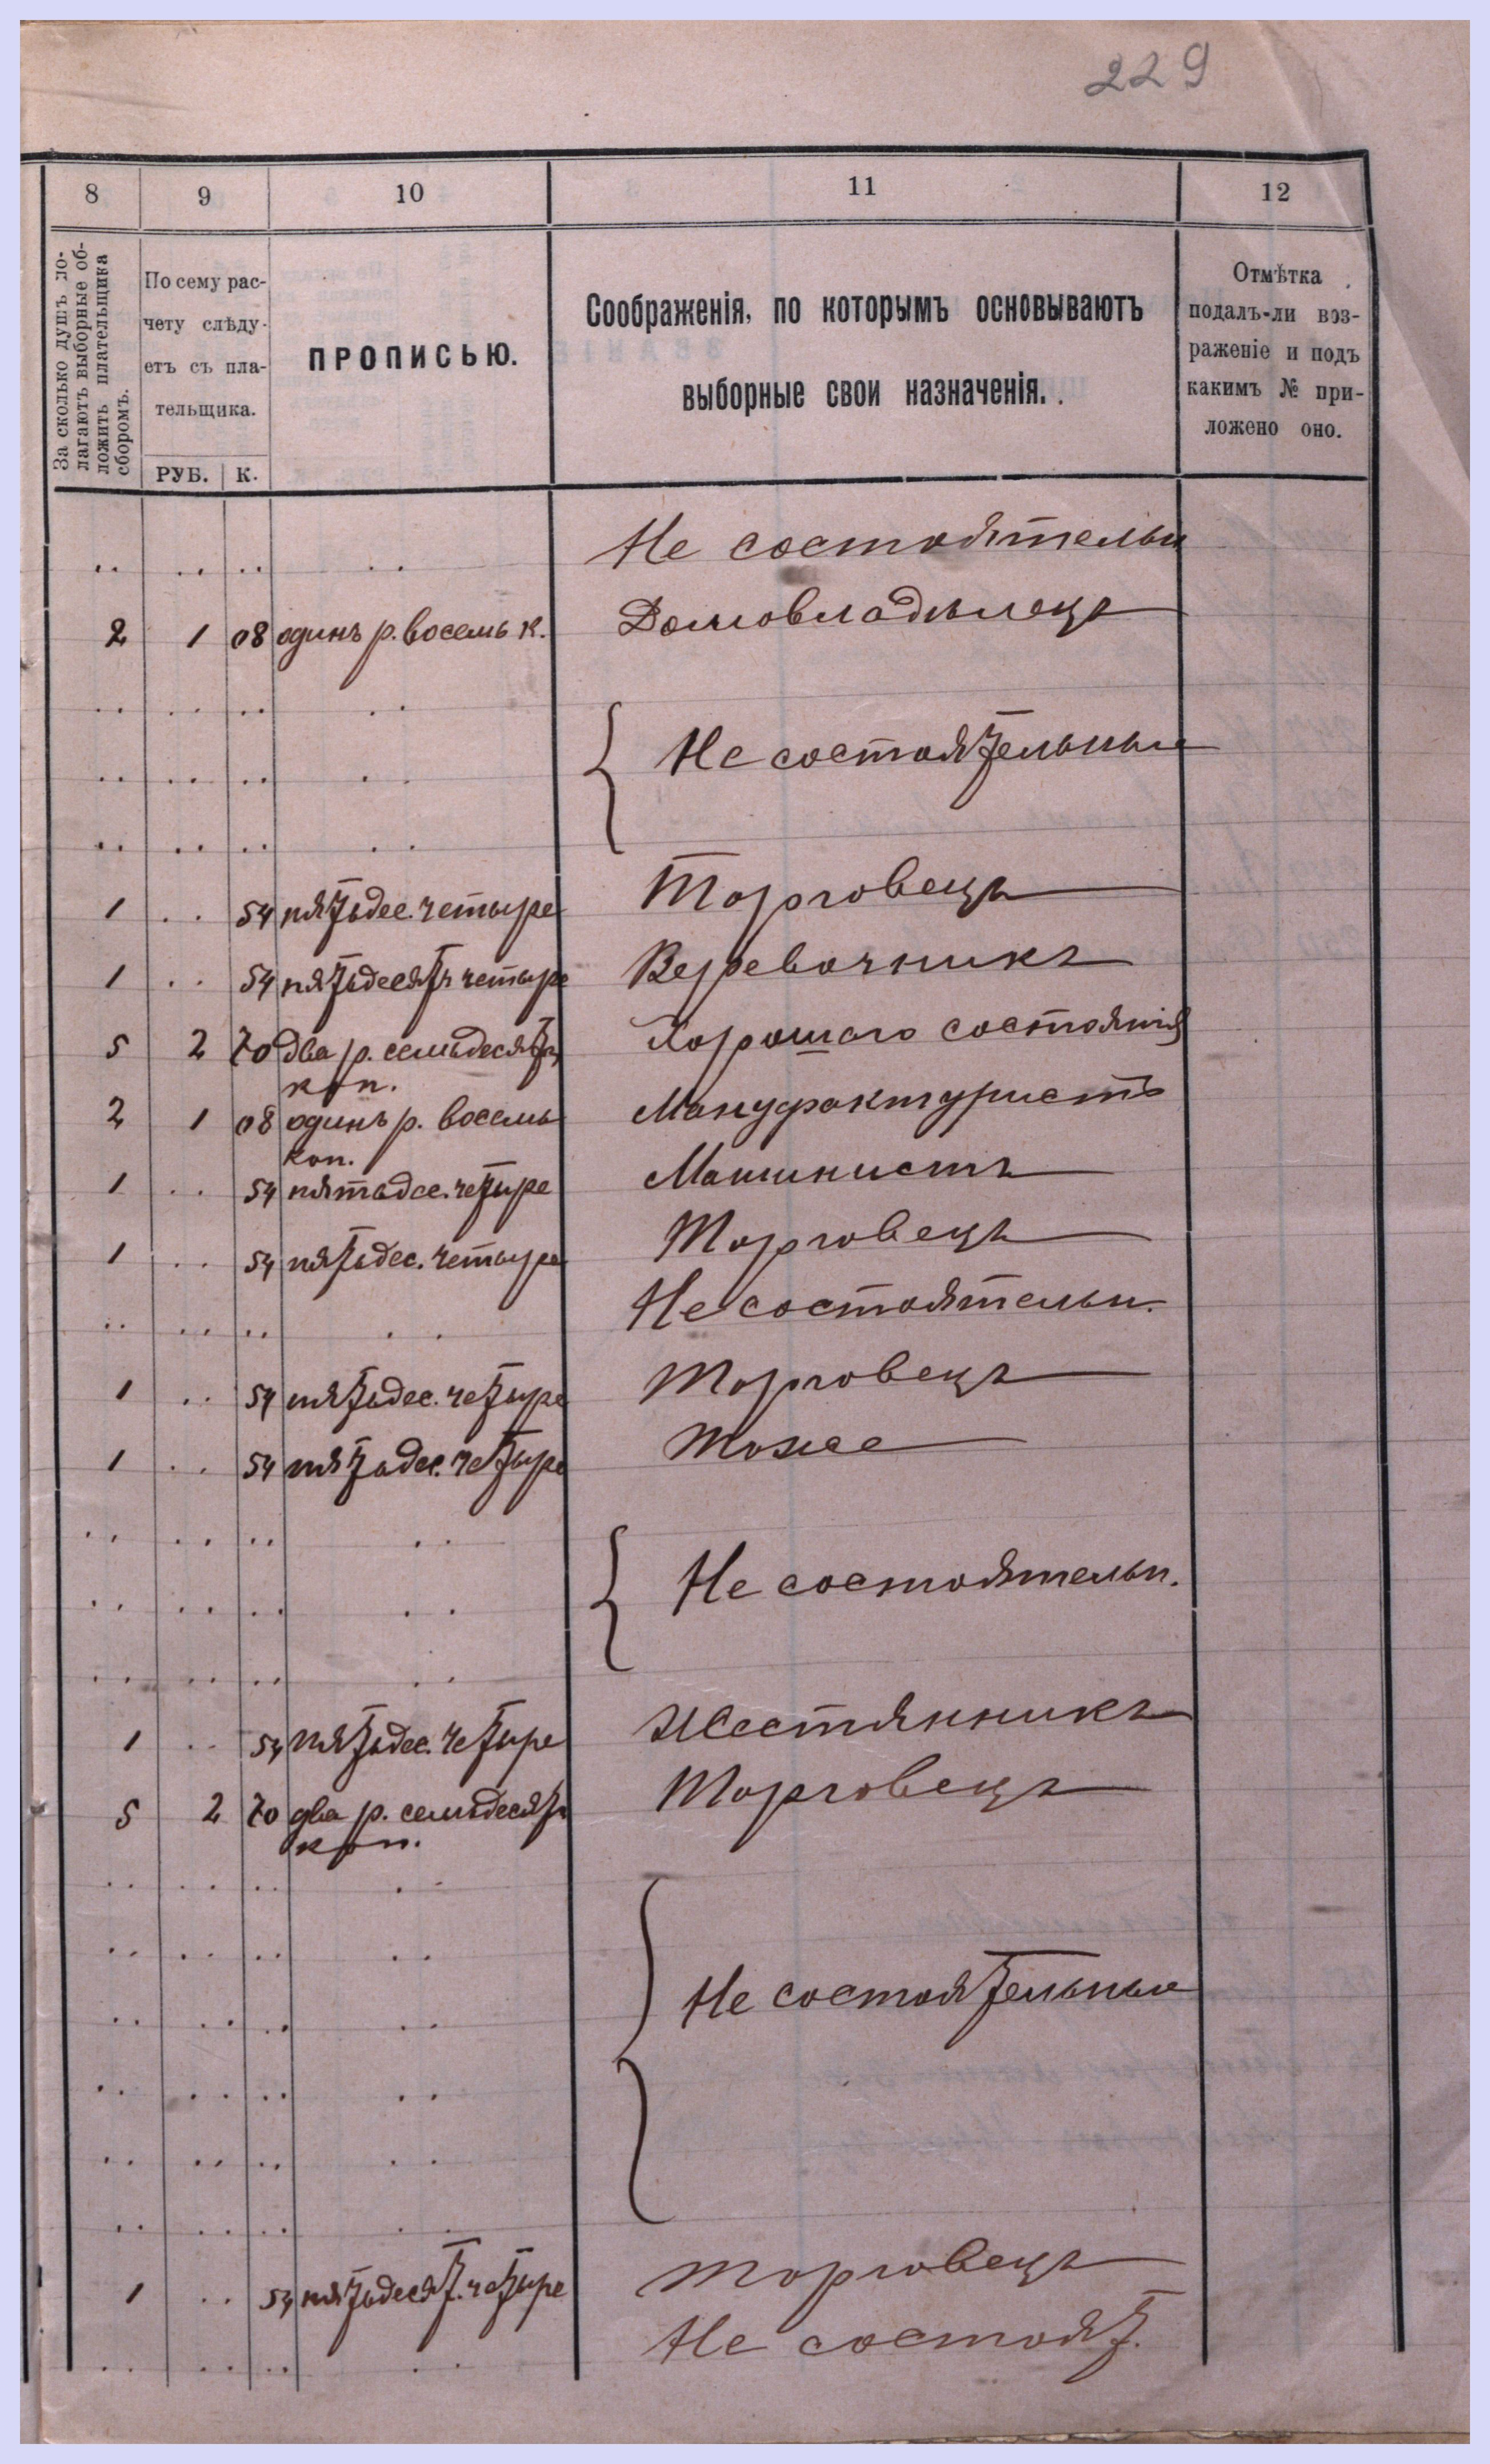 229
8 9 10 11 12
За сколько душъ по-
лагаютъ выборные об-
ложить плательщика
сборомъ.
По сему рас-
чету слѣду-
етъ съ пла-
тельщика.
РУБ. К.
ПРОПИСЬЮ.
Соображенія, по которымъ основываютъ
выборные свои назначенія.
Отмѣтка
подалъ-ли воз-
раженіе и подъ
какимъ № при-
ложено оно.
.. .. .. .. Не состоятельн
2 1 08 одинъ р. восемь к. Домовладѣлецъ
.. .. .. ..
.. .. .. .. Не состоятельные
.. .. .. ..
1 .. 54 пятьдес. четыре Торговецъ
1 .. 54 пятьдесятъ четыре Веревочникъ
5 2 70 два р. семьдесятъ Хорошаго состоянія
коп.
2 1 08 одинъ р. восемь Мануфактуристъ
коп.
1 .. 54 пятьдес. четыре Машинистъ
1 .. 54 пятьдес. четыре Торговецъ
.. .. .. .. Не состоятельн.
1 .. 54 пятьдес. четыре Торговецъ
1 .. 54 пятьдес. четыре Тоже
.. .. .. ..
.. .. .. .. Не состоятельн.
.. .. .. ..
1 .. 54 пятьдес. четыре Жестянникъ
5 2 70 два р. семьдесятъ Торговецъ
коп.
.. .. .. ..
.. .. .. ..
.. .. .. .. Не состоятельные
.. .. .. ..
.. .. .. ..
.. .. .. ..
1 .. 54 пятьдесят. четыре Торговецъ
.. .. .. .. Не состоят.